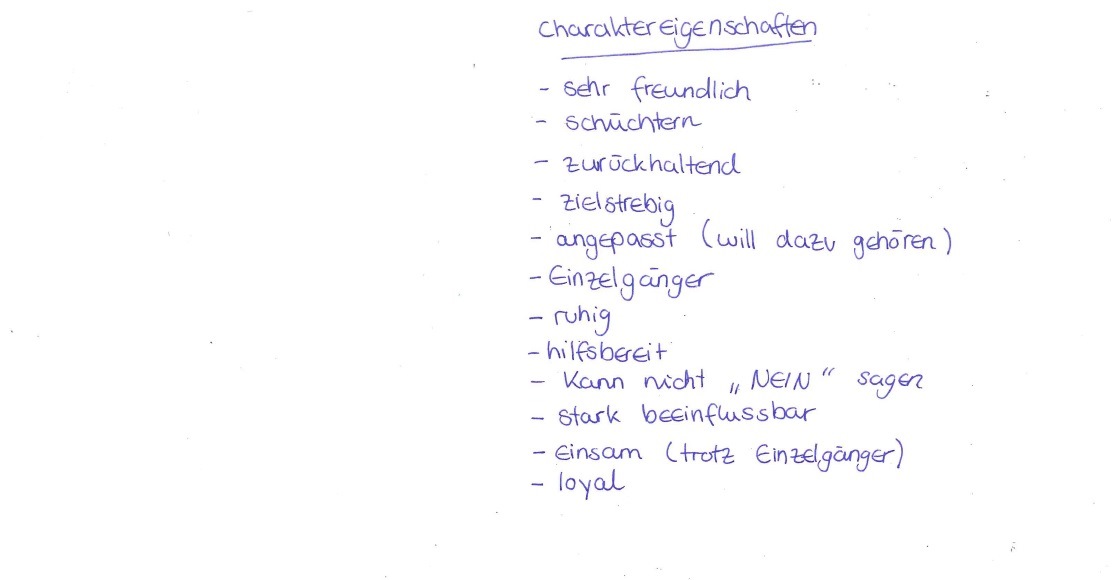 Charaktereigenschaften
- sehr freundlich
- schüchtern
- zurückhaltend
- zielstrebig
- angepasst (will dazu gehören)
- Einzelgänger
- ruhig
- hilfsbereit
- Kann nicht „NEIN“ sagen
- stark beeinflussbar
- Einsam (trotz Einzelgänger)
- loyal